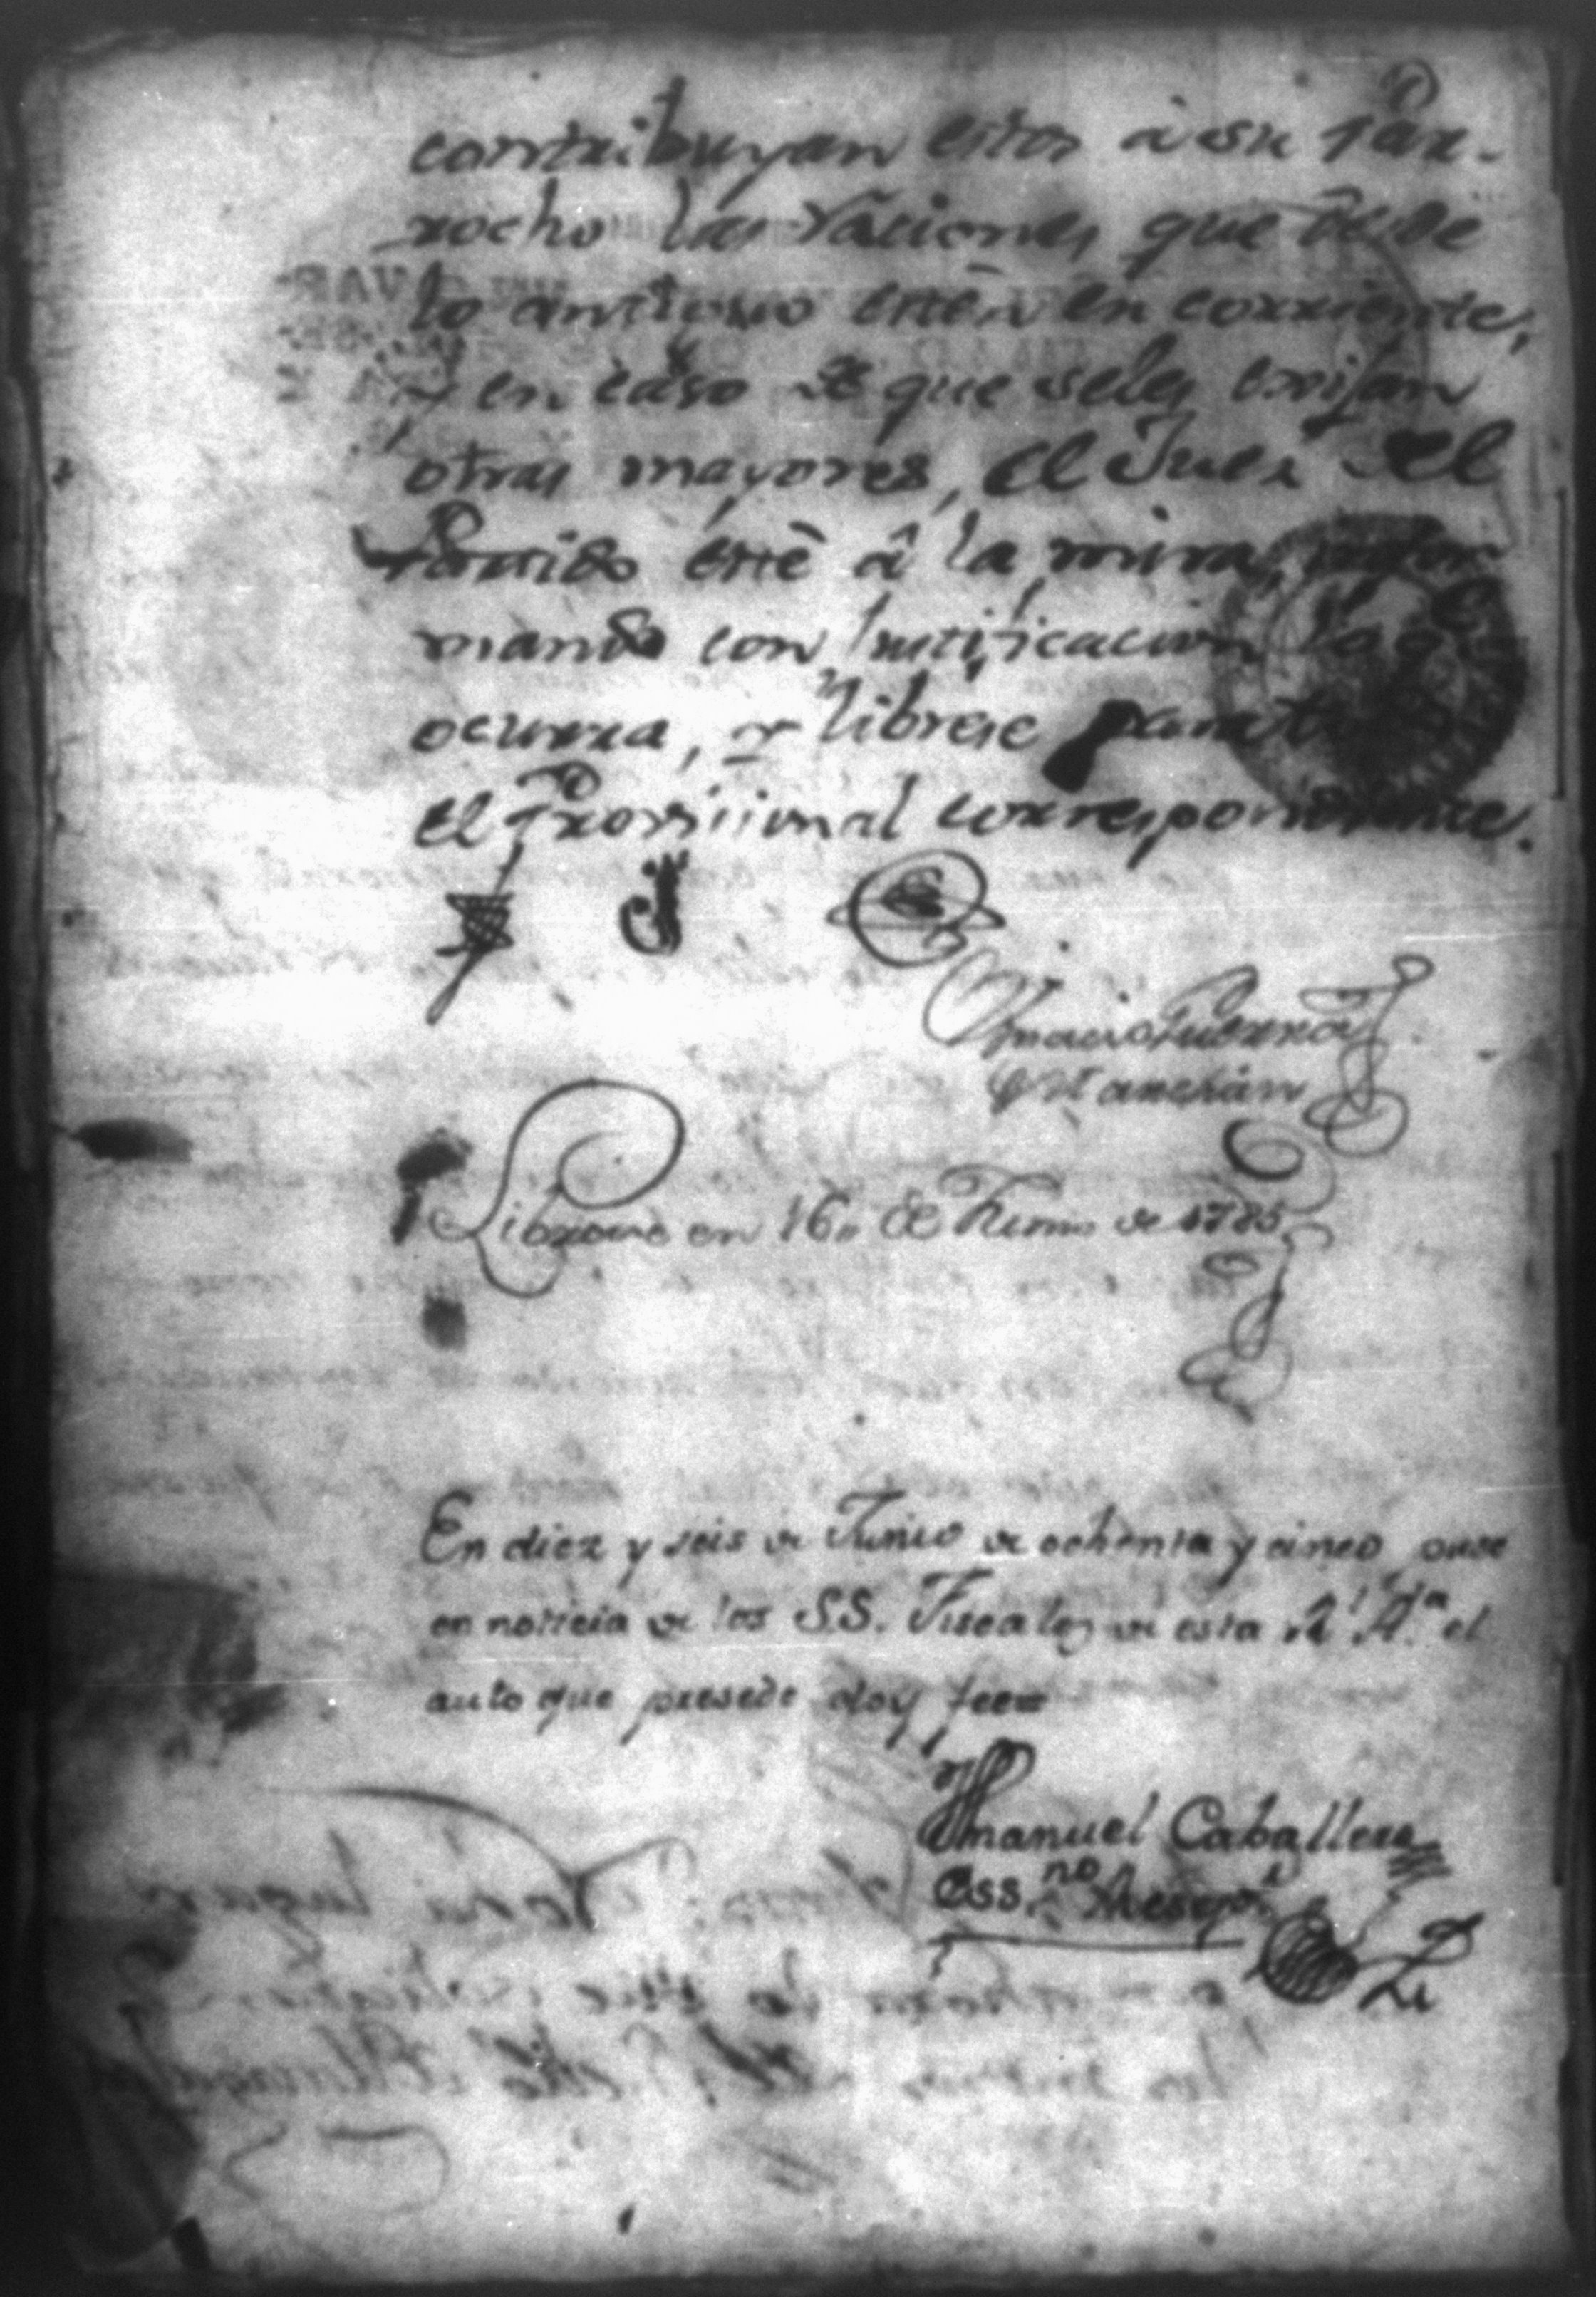 contribuyan estos à su Pár-
rocho las raciones que desde
lo antiguo estèn en corriente,
y en caso de que seles exijan
otras mayores, el Juez del
Partido estè â la mira, infor-
mando con justificacion lo q.e
ocurra, y librese para
el Provisional correspondiente.
Ignacio Guerra
Marchán
Librose en 16,, de Junio de 1785
En diez y seis de Junio de ochenta y cinco puse
en noticia de los SS. Fiscales de esta R.l A.a el
auto que presede doy fee
Manuel Caballero
Ess.no